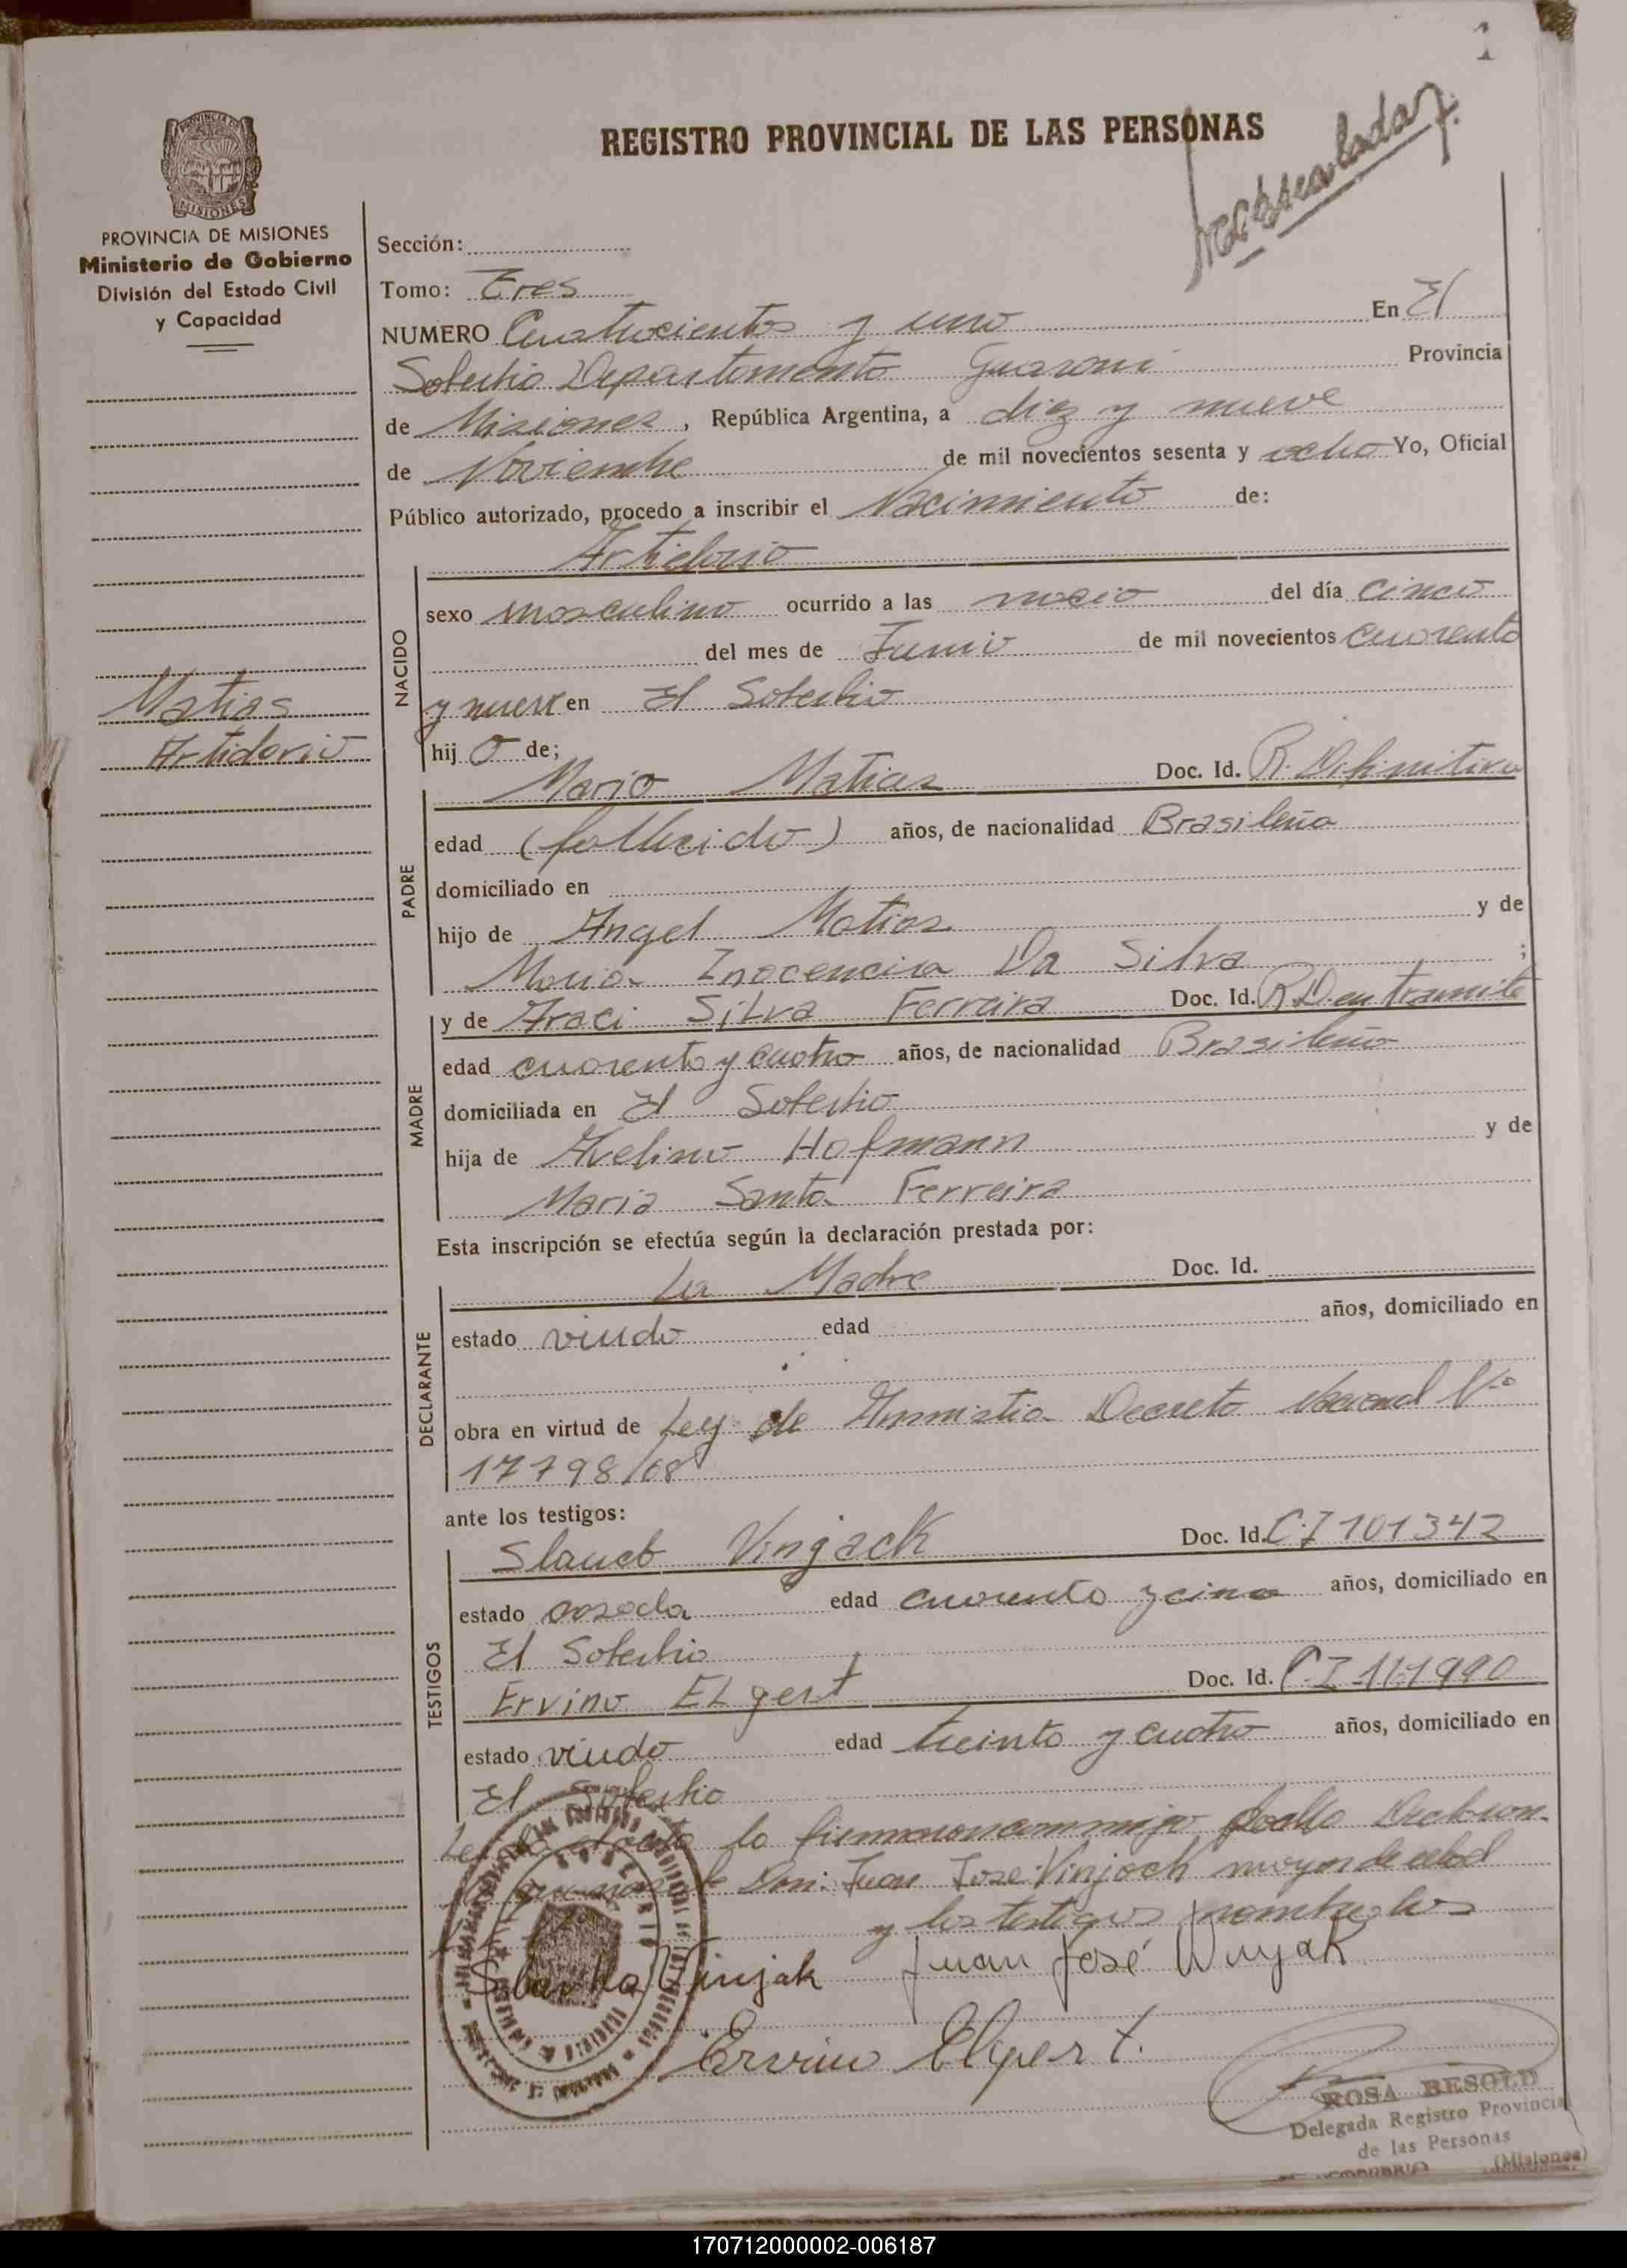 1
REGISTRO PROVINCIAL DE LAS PERSONAS
PROVINCIA DE
MISIONES
PROVINCIA DE MISIONES
Ministerio de Gobierno
División del Estado Civil
y Capacidad
Sección:
Tomo: Tres
NUMERO Cuatrocientos y uno En El
Soberbio Departamento Guarani Provincia
de Misiones, República Argentina, a diez y nueve
de Noviembre de mil novecientos sesenta y ocho Yo, Oficial
Público autorizado, procedo a inscribir el Nacimiento de:
Artidorio
NACIDO
sexo masculino ocurrido a las del día cinco
del mes de Junio de mil novecientos cuarenta
y nueve en El Soberbio
Matias
Artidorio
hij o de;
PADRE
Mario Matias Doc. Id. R. Definitiva
edad (fallecido) años, de nacionalidad Brasileña
domiciliado en
hijo de Angel Matias y de
Maria Inocencia Da Silva ;
MADRE
y de Araci Silva Ferreira Doc. Id. R.D. en tramite
edad cuarenta y cuatro años, de nacionalidad Brasileña
domiciliada en El Soberbio
hija de Avelino Hofmann y de
Maria Santa Ferreira
Esta inscripción se efectúa según la declaración prestada por:
DECLARANTE
La Madre Doc. Id.
estado viuda edad años, domiciliado en
obra en virtud de Ley de Amnistia Decreto Nacional No
17798/68
ante los testigos:
TESTIGOS
Slauct Vinjack Doc. Id. C.I 101342
estado casada edad cuarenta y cinco años, domiciliado en
El Soberbio
Ervino Elgert Doc. Id. C.I
estado viudo edad treinta y cuatro años, domiciliado en
El Soberbio
Leida el acta la firmaron conmigo
Don: Juan Jose Vinjack mayor de edad
y los testigos nombrados
Vinjak Juan José
Ervin Elgert.
ROSA BESOLD
Delegada Registro Provincial
de las Personas
(Misiones)
170712000002-006187